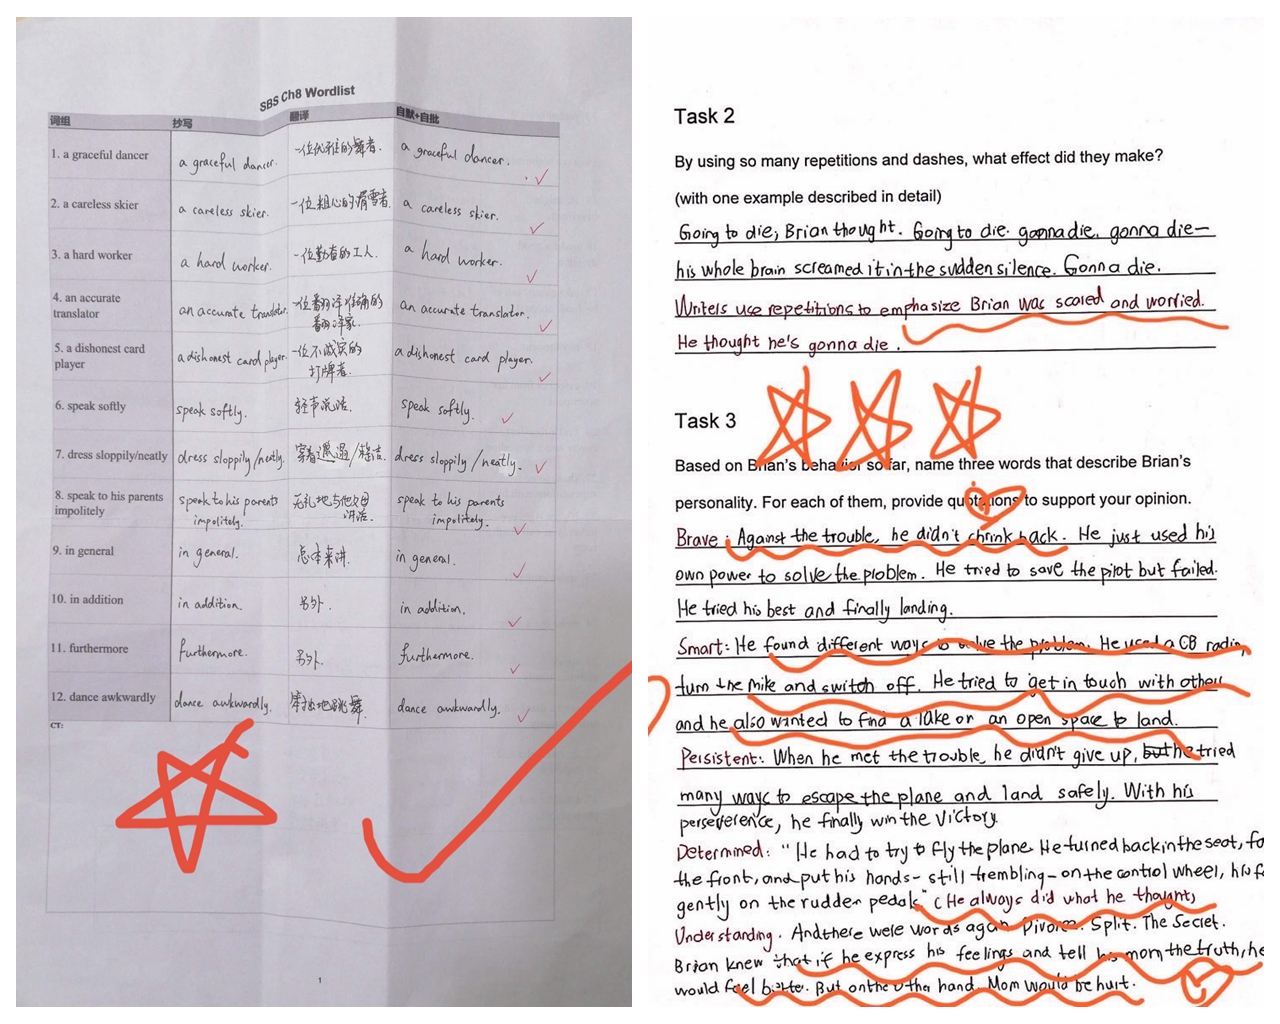 SBS Ch8 Wordlist
词组 抄写 翻译 自默+自批
1. a graceful dancer a graceful dancer. 一位优雅的舞者. a graceful dancer.
2. a careless skier a careless skier. 一位粗心的滑雪者 a careless skier.
3. a hard worker a hard worker. 一位勤奋的工人. a hard worker.
4. an accurate translator an accurate translator. 一位翻译准确的翻译家. an accurate translator.
5. a dishonest card player a dishonest card player. 一位不诚实的打牌者. a dishonest card player.
6. speak softly speak softly. 轻声说话. speak softly.
7. dress sloppily/neatly dress sloppily/neatly. 穿着邋遢/整洁. dress sloppily/neatly.
8. speak to his parents impolitely speak to his parents impolitely. 无礼地与他父母讲话. speak to his parents impolitely.
9. in general in general. 总体来讲. in general.
10. in addition in addition. 另外. in addition.
11. furthermore furthermore. 另外. furthermore.
12. dance awkwardly dance awkwardly. 笨拙地跳舞. dance awkwardly.
CT:
1
Task 2
By using so many repetitions and dashes, what effect did they make?
(with one example described in detail)
Going to die, Brian thought. Going to die. gonna die, gonna die—
his whole brain screamed it in the sudden silence. Gonna die.
Writers use repetitions to emphasize Brian was scared and worried.
He thought he's gonna die.
Task 3
Based on Brian's behavior so far, name three words that describe Brian's
personality. For each of them, provide quotations to support your opinion.
Brave: Against the trouble, he didn't chrink back. He just used his
own power to solve the problem. He tried to save the pilot but failed.
He tried his best and finally landing.
Smart: He found different ways to solve the problem. He used a CB radio,
turn the mike and switch off. He tried to get in touch with other
and he also wanted to find a lake or an open space to land.
Persistent: When he met the trouble, he didn't give up, but he tried
many ways to escape the plane and land safely. With his
perseverence, he finally win the victory.
Determined: "He had to try to fly the plane. He turned back in the seat, fa
the front, and put his hands- still trembling- on the control wheel, his f
gently on the rudder pedals" (He always did what he thought)
Understanding. And there were words again Divorce. Split. The Secret.
Brian knew that if he express his feelings and tell his mom the truth, he
would feel better. But on the other hand. Mom would be hurt.